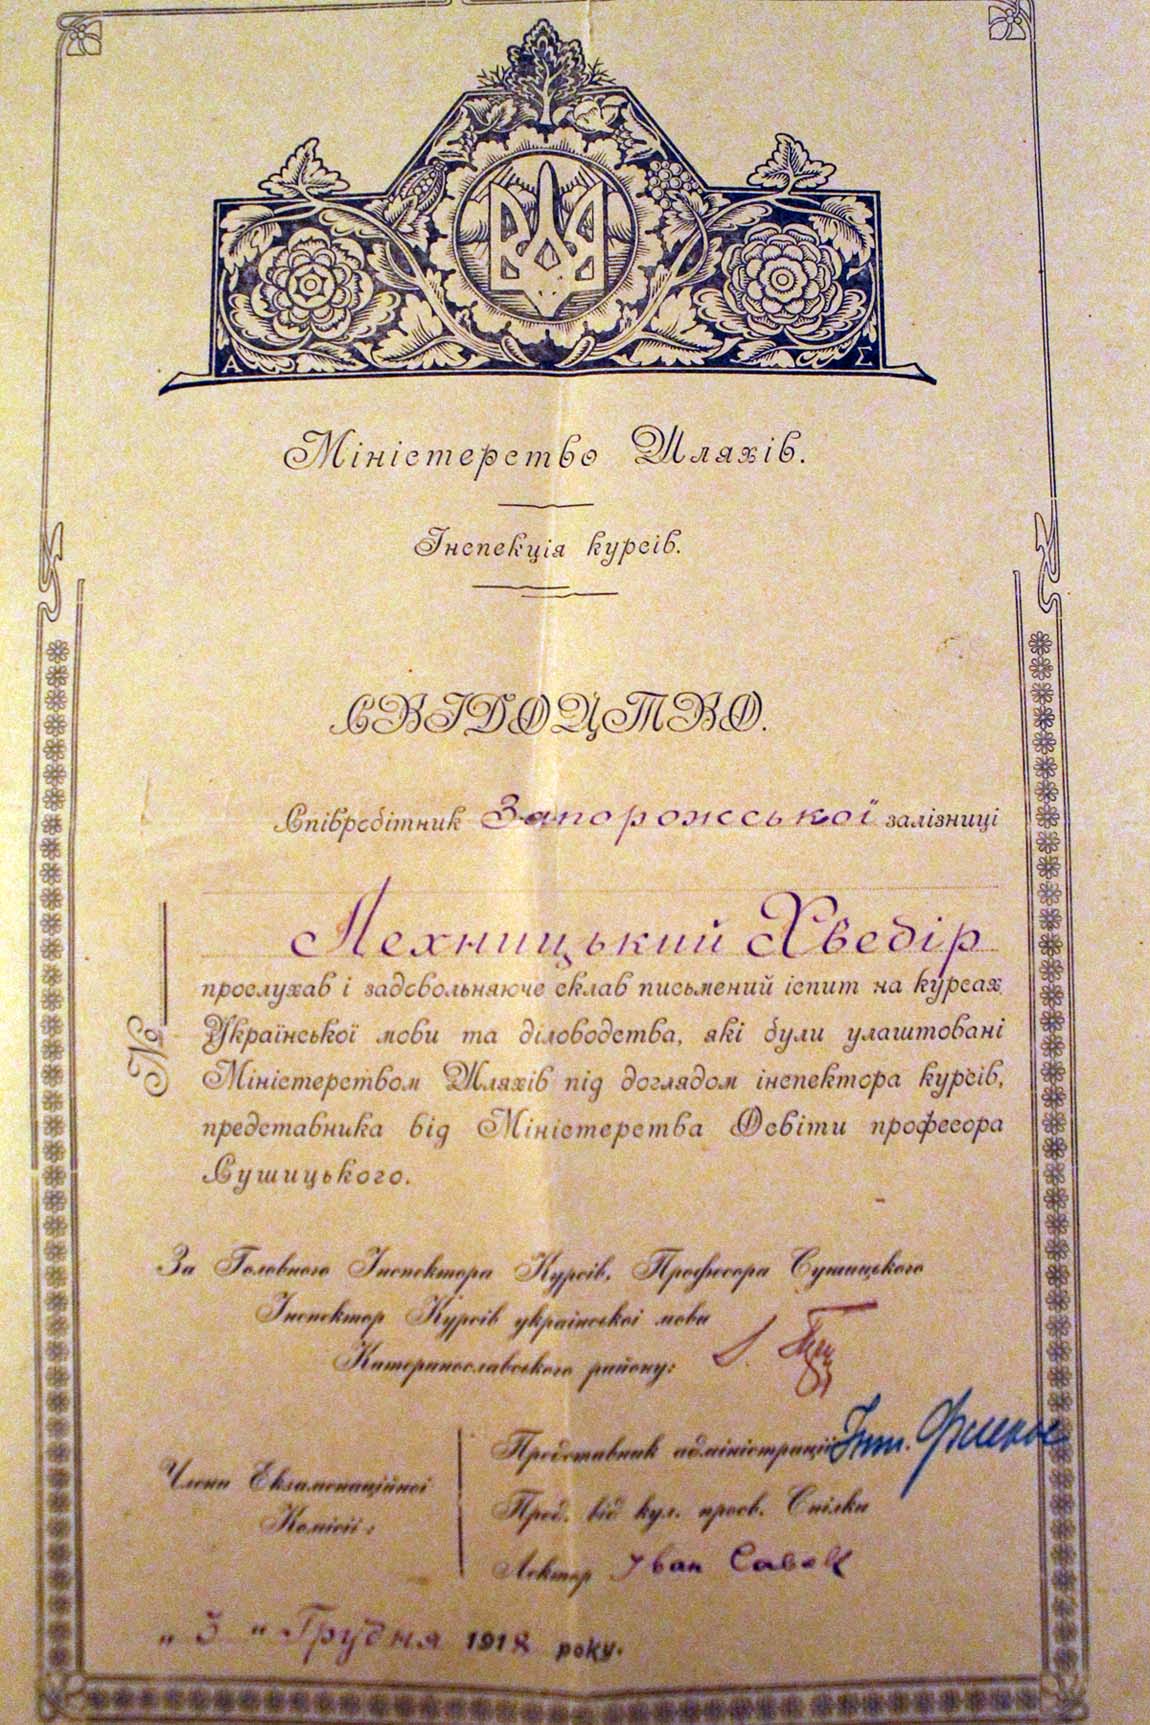 А Σ
Міністерство Шляхів.
Інспекція курсів.
СВІДОЦТВО.
Співробітник Запорожської залізниці
Лехницький Хведір
прослухав і задовольняюче склав письмений іспит на курсах
Української мови та діловодства, які були улаштовані
Міністерством Шляхів під доглядом інспектора курсів,
представника від Міністерства Освіти професора
Сушицького.
№
За Головного Інспектора Курсів, Професора Сушицького
Інспектор Курсів української мови
Катеринославського району:
Члени Екзаменаційної
Комісії:
Представник адміністрації
Пред. від кул. просв. Спілки
Лектор Іван
„3" Грудня 1918 року.